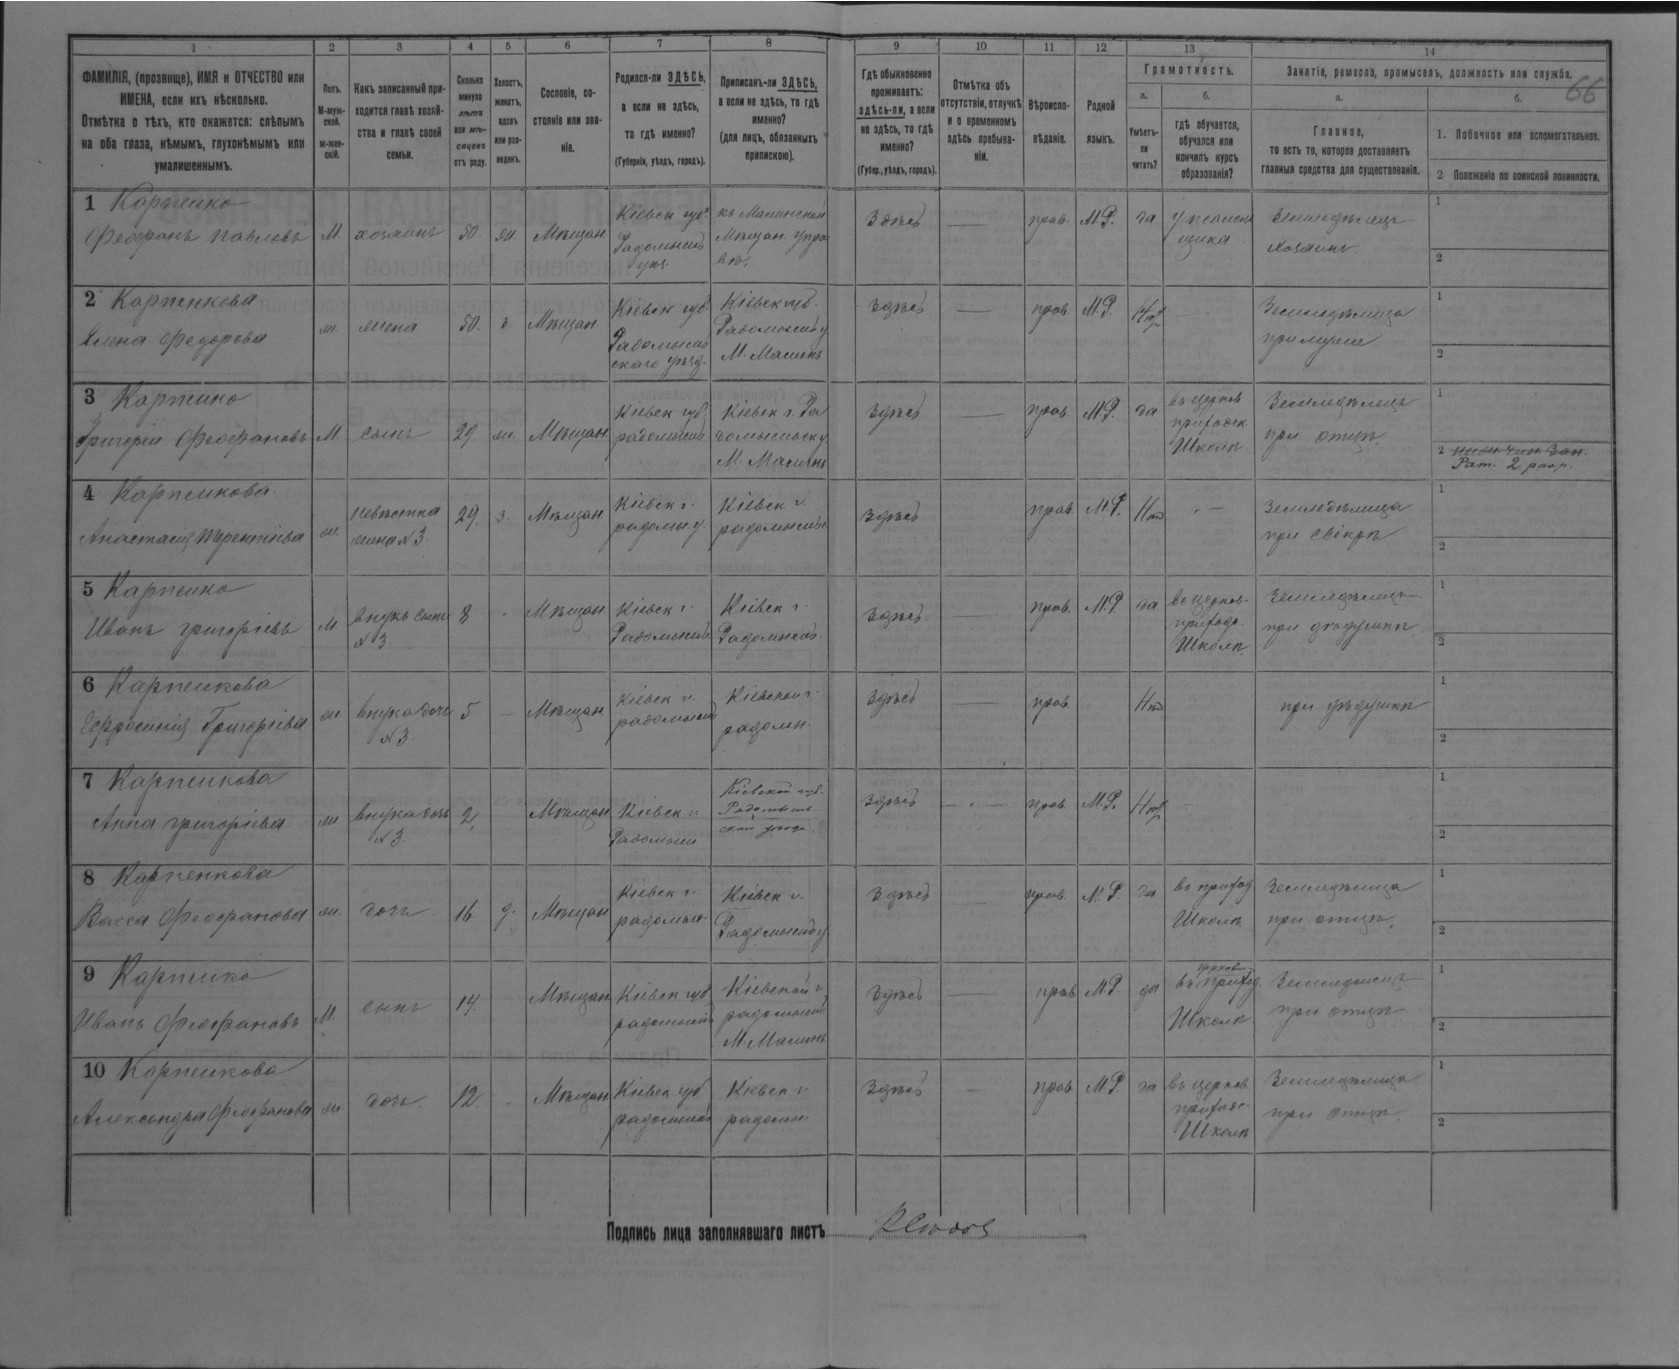 1 2 3 4 5 6 7 8 9 10 11 12 13 14
66
ФАМИЛІЯ, (прозвище), ИМЯ и ОТЧЕСТВО или
ИМЕНА, если ихъ нѣсколько.
Отмѣтка о тѣхъ, кто окажется: слѣпымъ
на оба глаза, нѣмымъ, глухонѣмымъ или
умалишеннымъ.
Полъ.
М-муж-
ской.
ж-жен-
скій.
Какъ записанный при-
ходится главѣ хозяй-
ства и главѣ своей
семьи.
Сколько
минуло
лѣтъ
или мѣ-
сяцевъ
отъ роду.
Холостъ,
женатъ,
вдовъ
или раз-
веденъ.
Сословіе, со-
стояніе или зва-
ніе.
Родился-ли ЗДѢСЬ,
а если не здѣсь,
то гдѣ именно?
(Губернія, уѣздъ, городъ).
Приписанъ-ли ЗДѢСЬ,
а если не здѣсь, то гдѣ
именно?
(для лицъ, обязанныхъ
припискою).
Гдѣ обыкновенно
проживаетъ:
здѣсь-ли, а если
не здѣсь, то гдѣ
именно?
(Губер., уѣздъ, городъ).
Отмѣтка объ
отсутствіи, отлучкѣ
и о временномъ
здѣсь пребыва-
ніи.
Вѣроиспо-
вѣданіе.
Родной
языкъ.
Грамотность.
а.
Умѣетъ-
ли
читать?
б.
гдѣ обучается,
обучался или
кончилъ курсъ
образованія?
Занятіе, ремесло, промыселъ, должность или служба.
а.
Главное,
то есть то, которое доставляетъ
главныя средства для существованія.
б.
1. Побочное или вспомогательное.
2 Положеніе по воинской повинности.
1 Карпенко
Феофанъ Павловъ
М. хозяинъ 50. жн. Мѣщан.
Кіевск губ.
Радомысль
уѣз.
къ Малинской
Мѣщан. упра
вѣ.
Здѣсь — прав. М.Р. да
Земледѣлецъ
хозяинъ.
1
2
2 Карпенкова
Елена Федорова
жн. жена 50. з. Мѣщан
Кіевск губ.
Радомысль
скаго уѣзд.
Кіевск губ.
Радомысль у
М. Малинъ
Здѣсь — прав. М.Р. Нѣт —
Земледѣлица
при мужѣ
1
2
3 Карпенко
Григорій Феофановъ
М сынъ 29. жн. Мѣщан.
Кіевск губ.
радомысль
Кіевск г. Ра
домысльску
М. Малинъ
Здѣсь — прав М.Р. да
въ церков
приходск
Школѣ
Земледѣлецъ
при отцѣ.
1
2
Рат. 2 разр.
4 Карпенкова
Анастасія Терентіева
жн.
невѣстка
жена №3.
29. з. Мѣщан.
Кіевск г.
радом. у.
Кіевск г.
радомысль
Здѣсь прав. М.Р. Нѣт —
Земледѣлица
при свёкрѣ
1
2
5 Карпенко
Иванъ Григоріевъ
М
внукъ сынъ
№3
8 - Мѣщан
Кіевск г.
Радомысль
Кіевск г.
Радомысль
Здѣсь прав. М.Р. да
въ церков-
приходс.
Школѣ.
Земледѣлецъ
при дѣдушкѣ
1
2
6 Карпенкова
Ефросинія Григоріева
жн
внука дочь
№3.
5 — Мѣщан
Кіевск г.
радомысль
Кіевской г.
радомы.
Здѣсь — прав Нѣт
при дѣдушкѣ
1
2
7 Карпенкова
Анна Григоріева
жн
внука дочь
№3.
2. Мѣщан
Кіевск г.
Радомысл
Кіевской губ.
Радомысль
ской уѣзд.
Здѣсь — прав М.Р. Нѣт -
1
2
8 Карпенкова
Васса Феофанова
жн. дочь 16. д. Мѣщан
Кіевск г.
радомысл
Кіевск г.
Радомысль у
Здѣсь — прав. М.Р. да
въ приход.
Школѣ.
Земледѣлица
при отцѣ.
1
2
9 Карпенко
Иванъ Феофановъ
М. сынъ 14. Мѣщан
Кіевск губ
радомысль
Кіевской г.
радомысль
М. Малинъ
Здѣсь — прав М.Р. да
церков
въ приход.
Школѣ
Земледѣлецъ
при отцѣ
1
2
10 Карпенкова
Александра Феофанова
жн. дочь. 12. - Мѣщан
Кіевск губ.
радомысль
Кіевск г.
радомы
Здѣсь — прав М.Р. да
въ церков
приходс-
Школѣ
Земледѣлица
при отцѣ.
1
2
Подпись лица заполнявшаго листъ